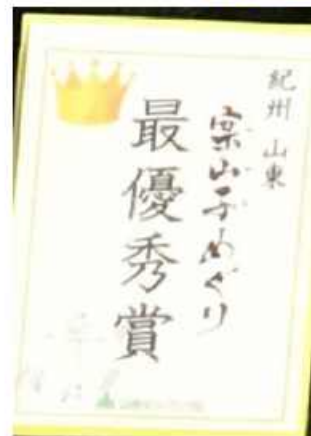 紀州 山東
案山子めぐり
最優秀賞